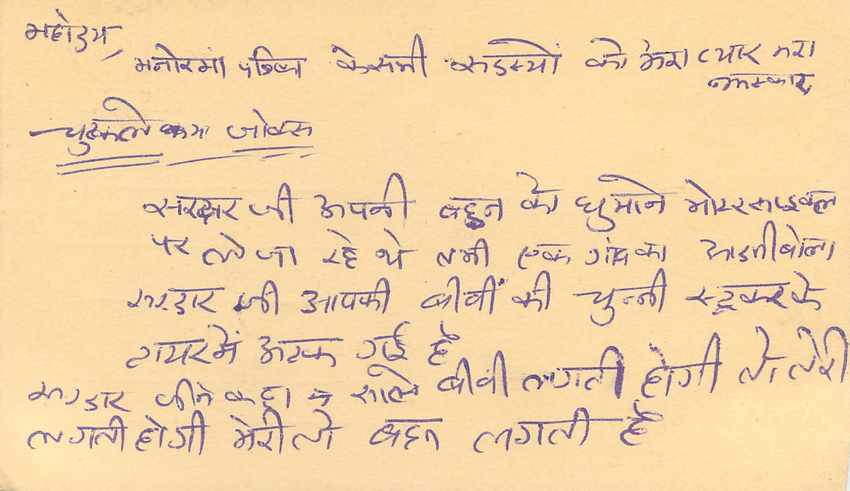 महोदय,
मनोरमां पत्रिका के सभी सदस्यों को मेरा प्यार भरा
नमस्कार,
चुटकले जोक्स
सरदार जी अपनी बहन को घुमाने मोटरसाइकल
पर ले जा रहे थे तभी एक गांव का आदमी बोला
सरदार जी आपकी बीबीं की चुन्नी स्टूकर के
टायर में अटक गई है
सरदार जी ने कहा साले बीवी लगती होगी तो तेरी
लगती होगी मेरी तो बहन लगती है